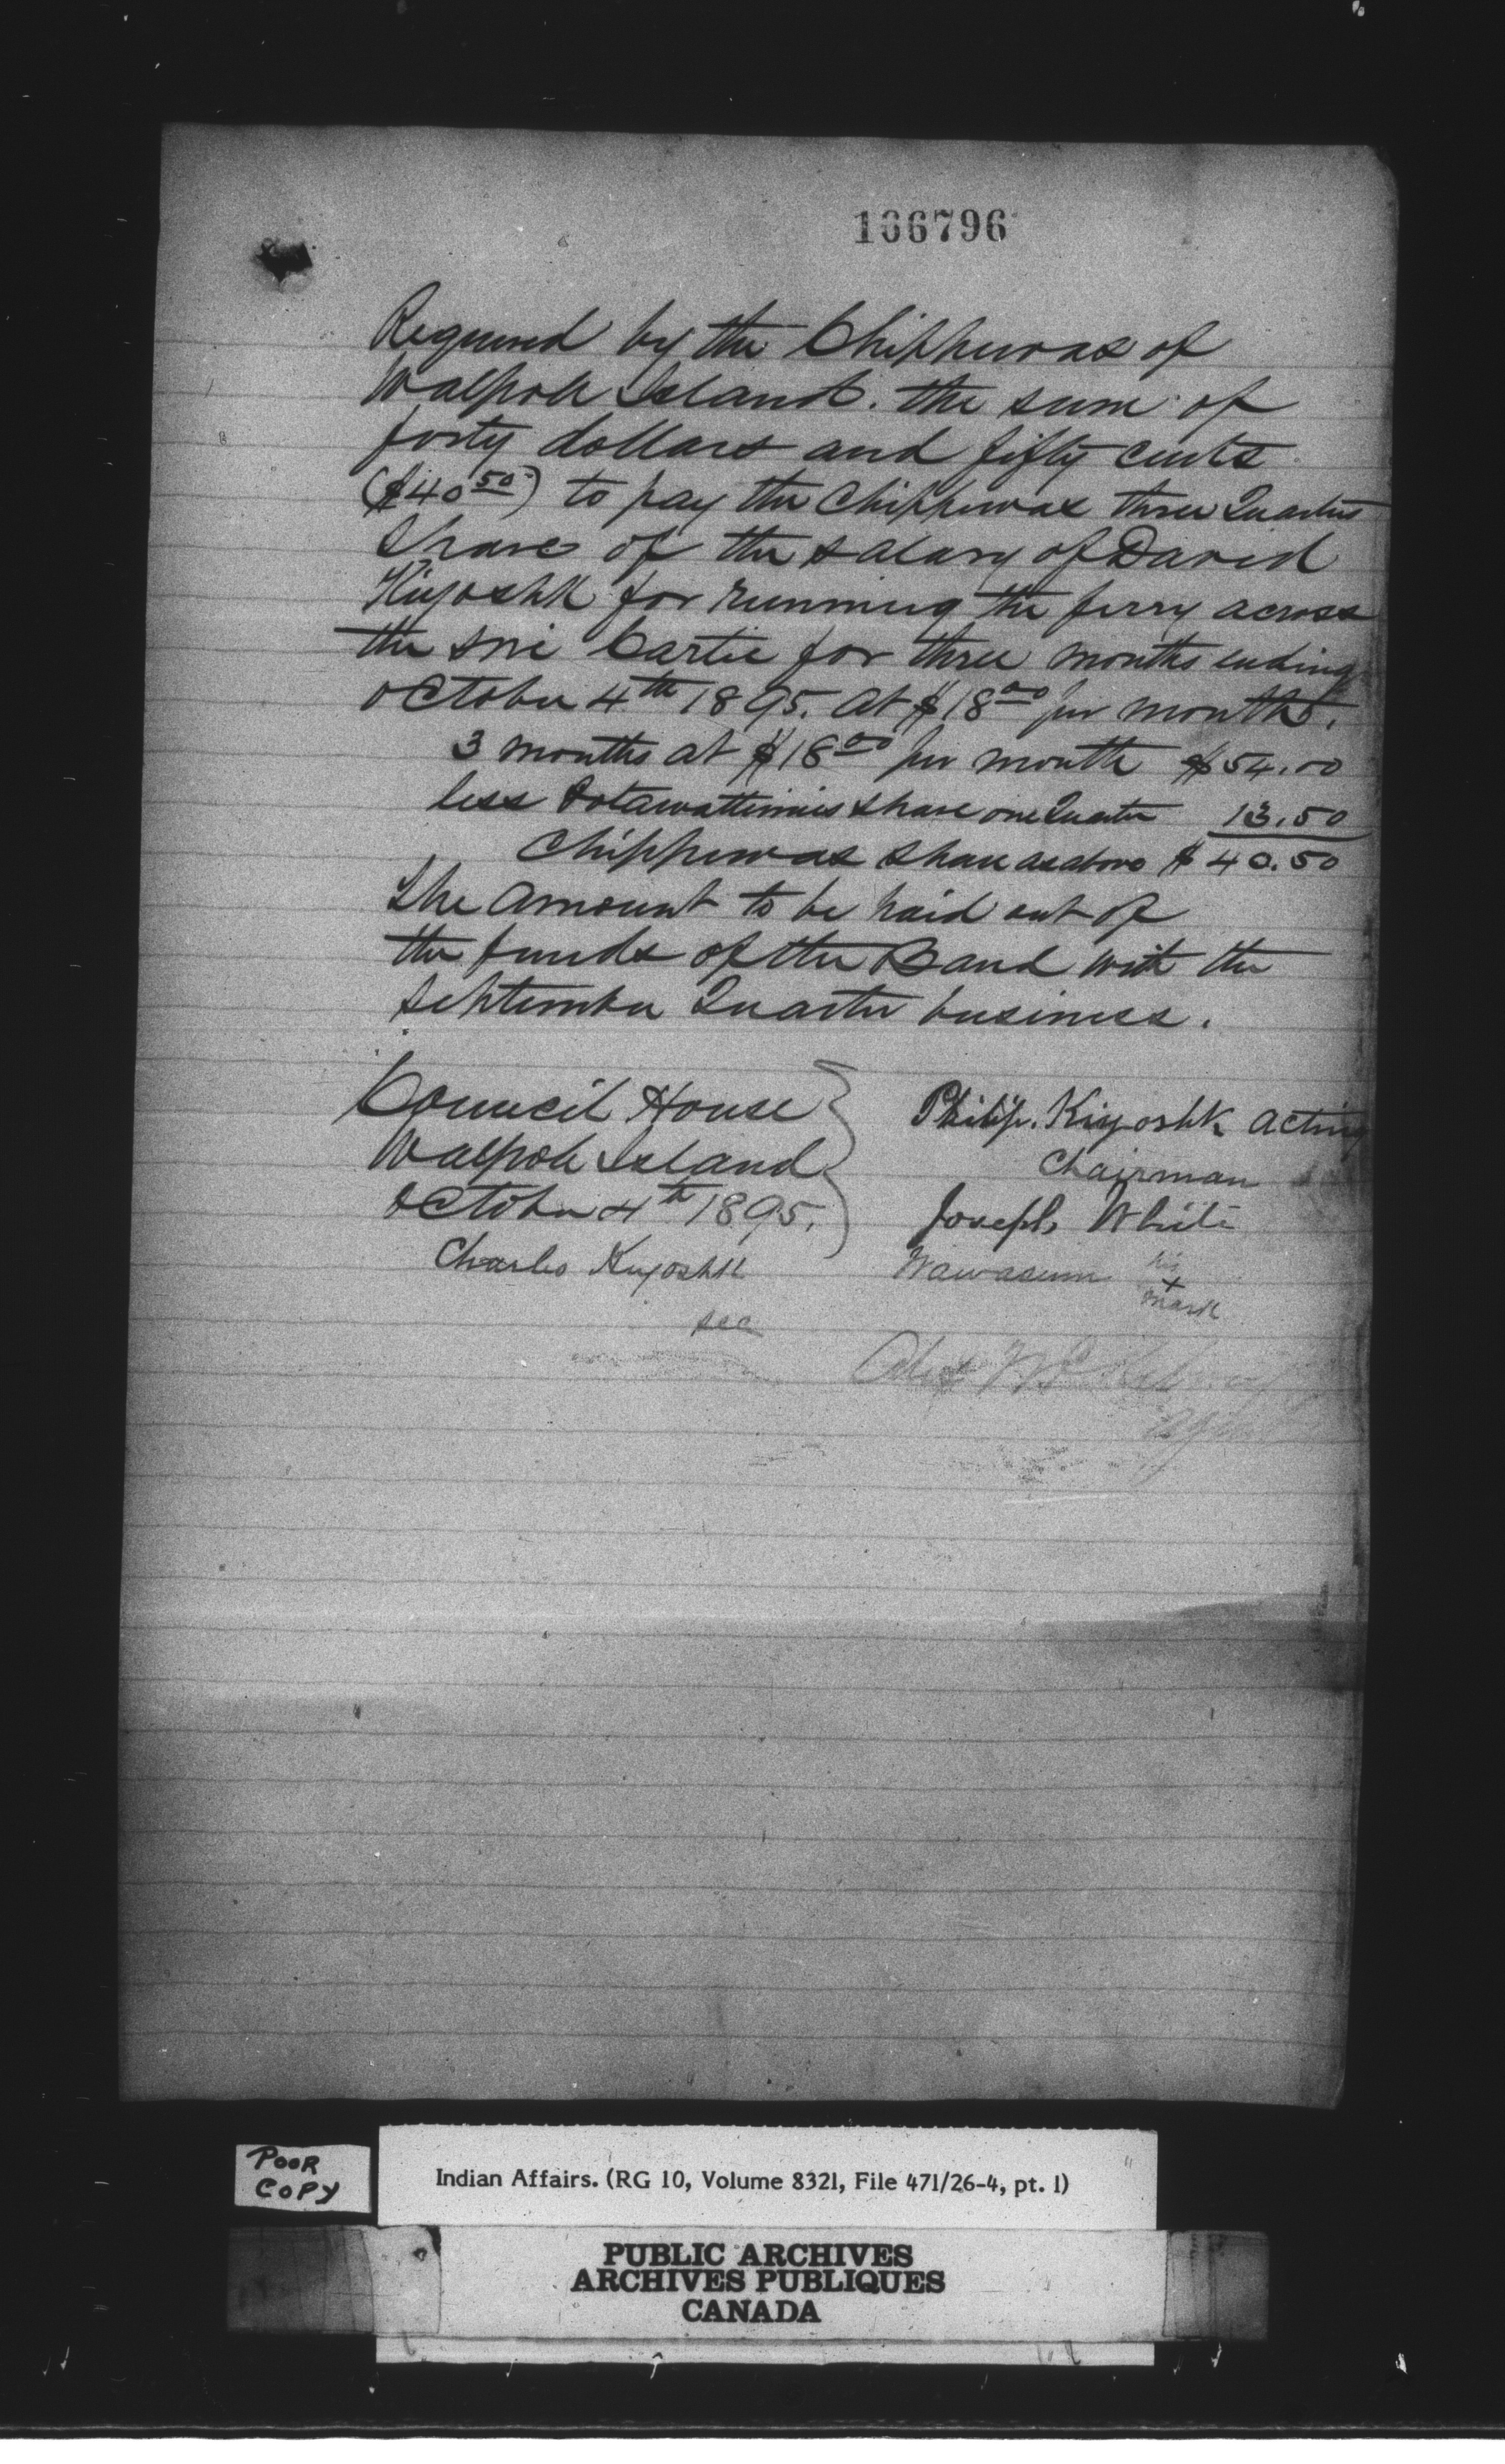 166796
Required by the Chippewas of
Walpole Island. the sum of
forty dollars and fifty cents
($40 50) to pay the Chippewas three Quarters
Share of the salary of David
Kiyoshk for running the ferry across
the sni Cartie for three months ending
October 4th 1895. At $18 00 per month.
3 months at $18 00 per month $54.00
less Potawattimies share one Quarter 13.50
Chippewas share as above $40.50
The Amount to be paid out of
the funds of the Band with the
September Quarter business.
Council House
Walpole Island
October 4th 1895.
Charles Kiyoshk
sec
Philip. Kiyoshk Acting
Chairman
Joseph White
Wawasum his
x
mark
Alex
agent
POOR
COPY
Indian Affairs. (RG 10, Volume 8321, File 471/26-4, pt. 1)
PUBLIC ARCHIVES
ARCHIVES PUBLIQUES
CANADA